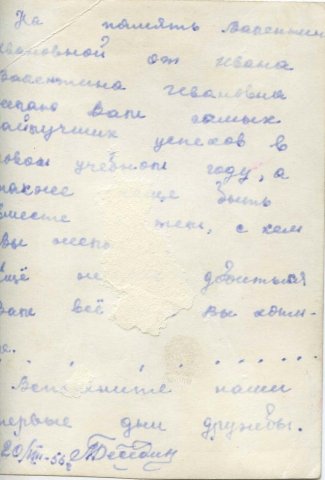 На память Валентин
ивановной от Ивана
Валентина Ивановна
желаю Вам самых
найлучших успехов в
новом учебном году, а
также чаще быть
вместе тем, с кем
вы
Ещё добиться
Вам всё Вы хоти-
те.
. . . . . . . . .
Вспомните наши
первые дни дружбы.
20/VIII-56г